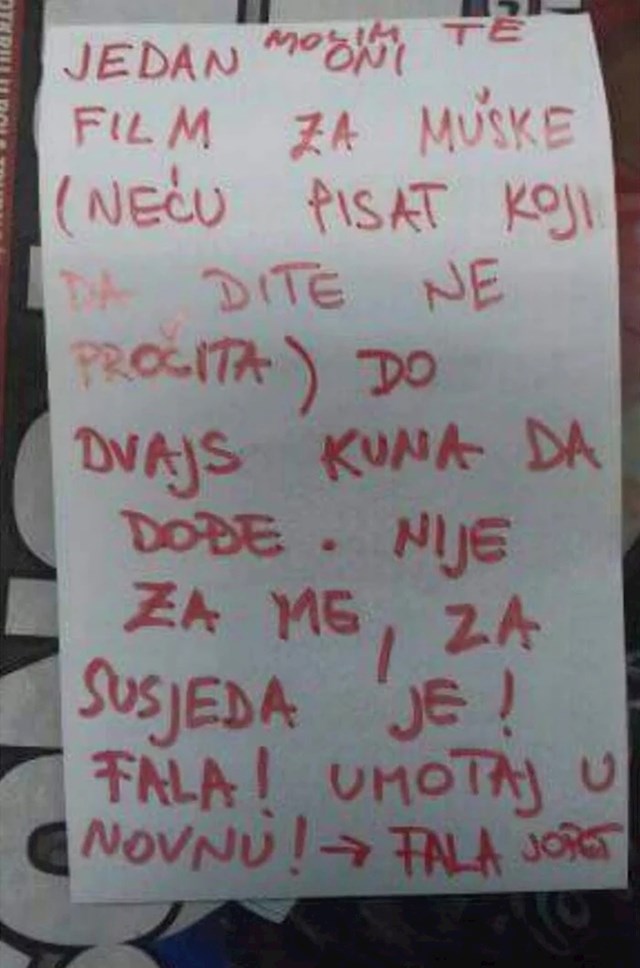 JEDAN MOLIM TE ONI
FILM ZA MUŠKE
(NEĆU PISAT KOJI
DA DITE NE
PROČITA) DO
DVAJS KUNA DA
DOĐE. NIJE
ZA ME, ZA
SUSJEDA JE!
FALA! UMOTAJ U
NOVNU! → FALA JOPET